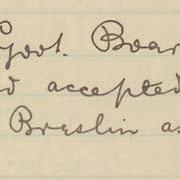 Govt. Boar
d accepted
Breslin as